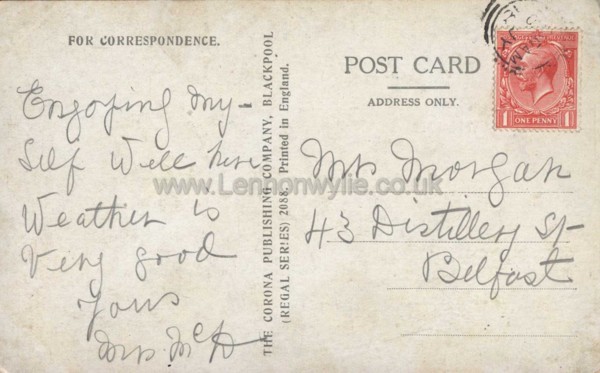 FOR CORRESPONDENCE.
Engoying my-
self Well here
Weather is
Very good
yours
Mrs McD
THE CORONA PUBLISHING COMPANY, BLACKPOOL
(REGAL SERIES) 2088. Printed in England.
POST CARD
ADDRESS ONLY.
POSTAGE REVENUE
1 ONE PENNY 1
Mrs Morgan
43 Distillery St-
Belfast
www.Lennonwylie.co.uk